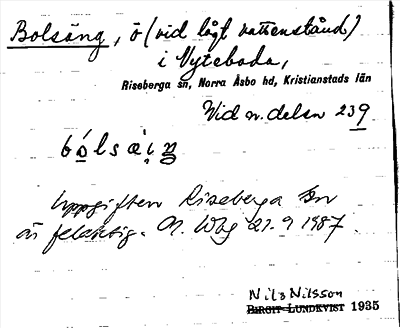 Bolsäng, ö (vid lågt vattenstånd)
i Nyteboda,
Riseberga sn, Norra Åsbo hd, Kristianstads län
Vid nr. delsn 239
Uppgiften Riseberga sn
är felaktig. 21.9 1987.
Nils Nilsson
BIRGIT LUNDKVIST 1935